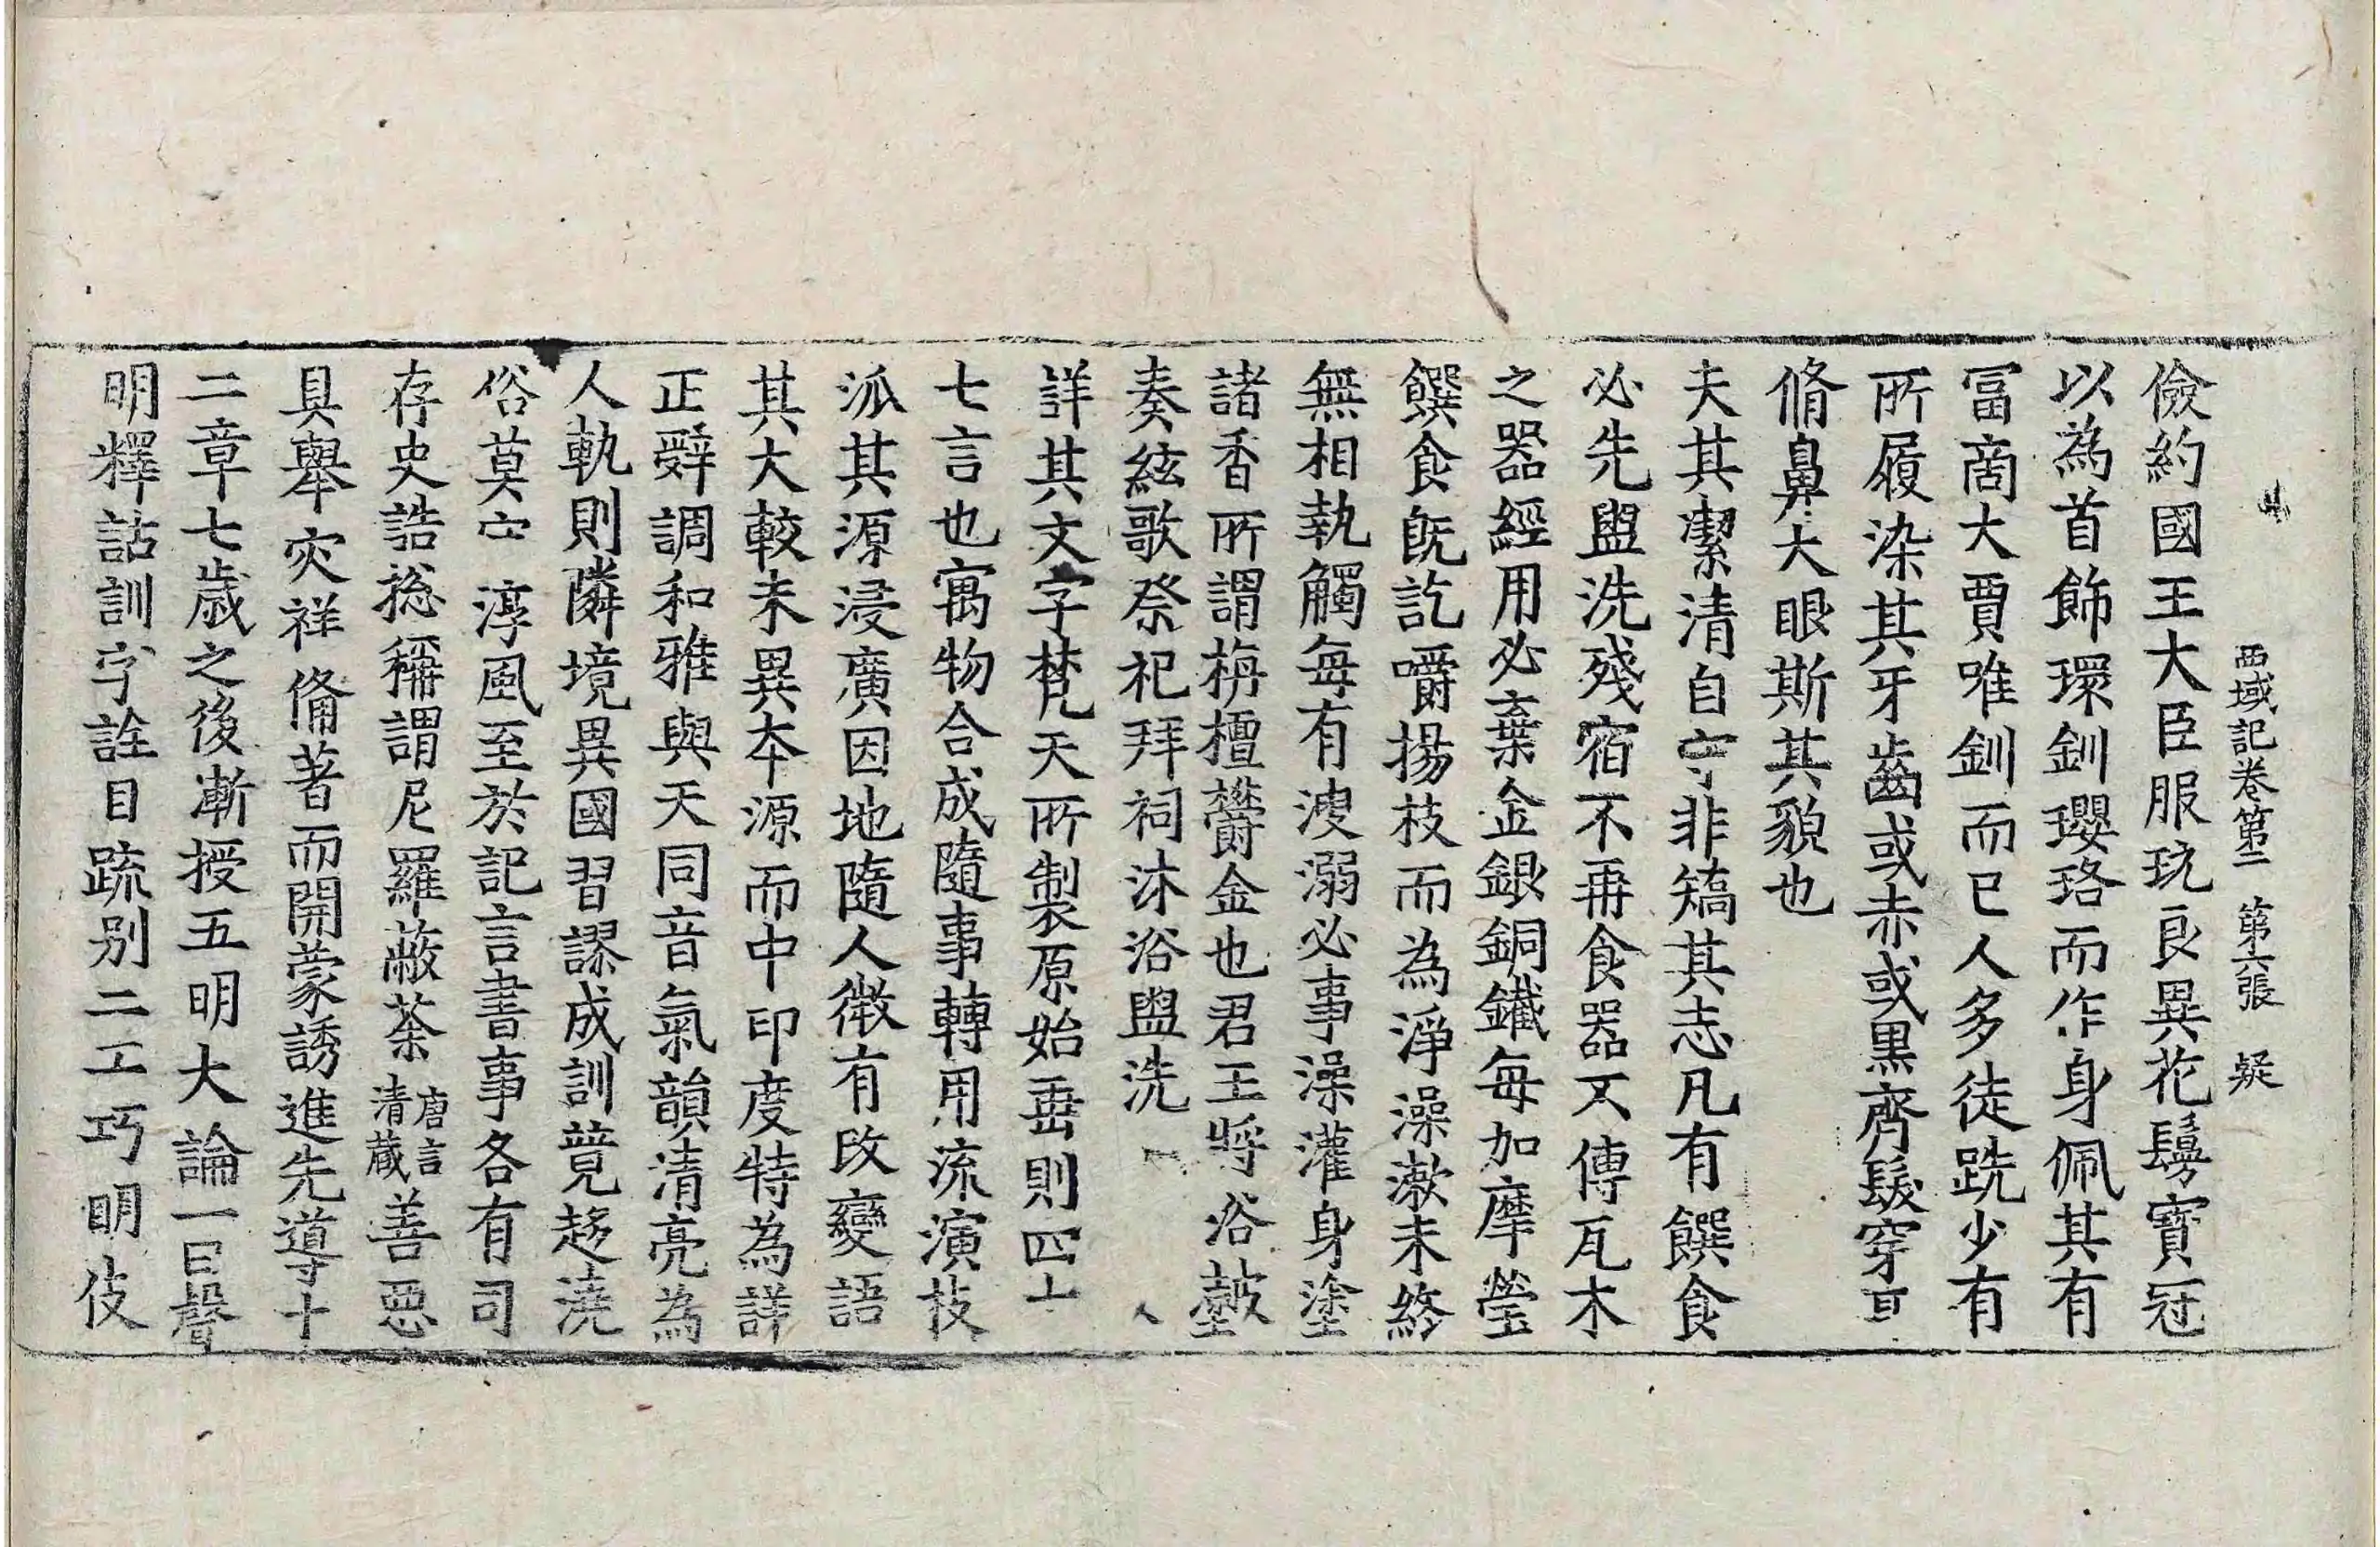 西域記卷第二 第六張 疑
儉約國王大臣服玩良異花鬘寶冠
以為首飾環釧瓔珞而作身佩其有
冨商大賈唯釧而已人多徒跣少有
所履染其牙齒或赤或黒齊髮穿耳
脩鼻大眼斯其貌也
夫其潔清自守非矯其志凡有饌食
必先盥洗殘宿不再食器不傳瓦木
之器經用必棄金銀銅鐵每加摩瑩
饌食旣訖嚼揚枝而為淨澡漱未終
無相執觸每有溲溺必事澡灌身塗
諸香所謂栴檀欝金也君王將浴鼓
奏絃歌祭祀拜祠沐浴盥洗
詳其文字梵天所製原始垂則四十
七言也寓物合成隨事轉用流演枝
派其源浸廣因地隨人微有改變語
其大較未異本源而中印度特為詳
正辭調和雅與天同音氣韻清亮為
人軌則隣境異國習謬成訓競趍澆
俗莫守淳風至於記言書事各有司
存史誥捴稱謂尼羅蔽荼唐言清藏善惡
具舉灾祥備著而開蒙誘進先導十
二章七歲之後漸授五明大論一曰聲
明釋詁訓字詮目疏別二工巧明伎